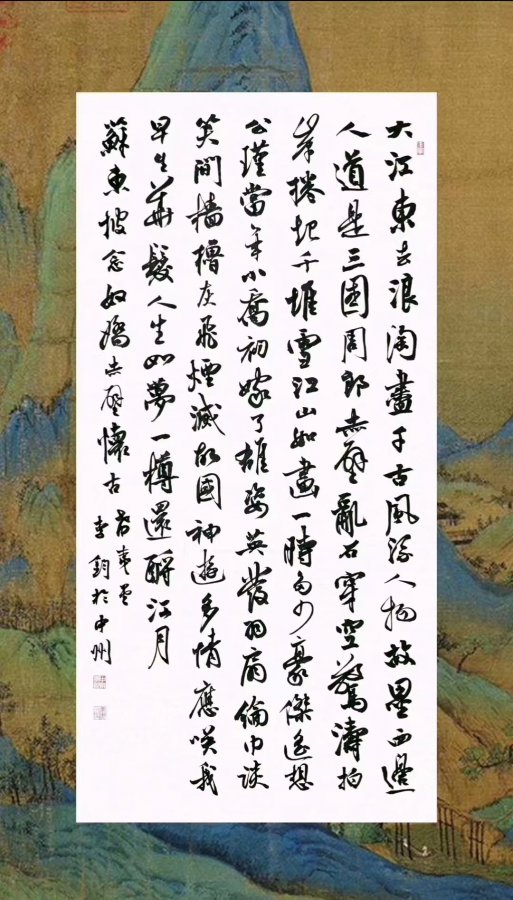 大江東去浪淘盡千古風流人物故壘西邊
人道是三國周郎赤壁亂石穿空驚濤拍
岸捲起千堆雪江山如畫一時多少豪傑遙想
公瑾當年小喬初嫁了雄姿英發羽扇綸巾談
笑間檣櫓灰飛煙滅故國神遊多情應笑我
早生華髮人生如夢一樽還酹江月
蘇東坡念奴嬌赤壁懷古
於中州